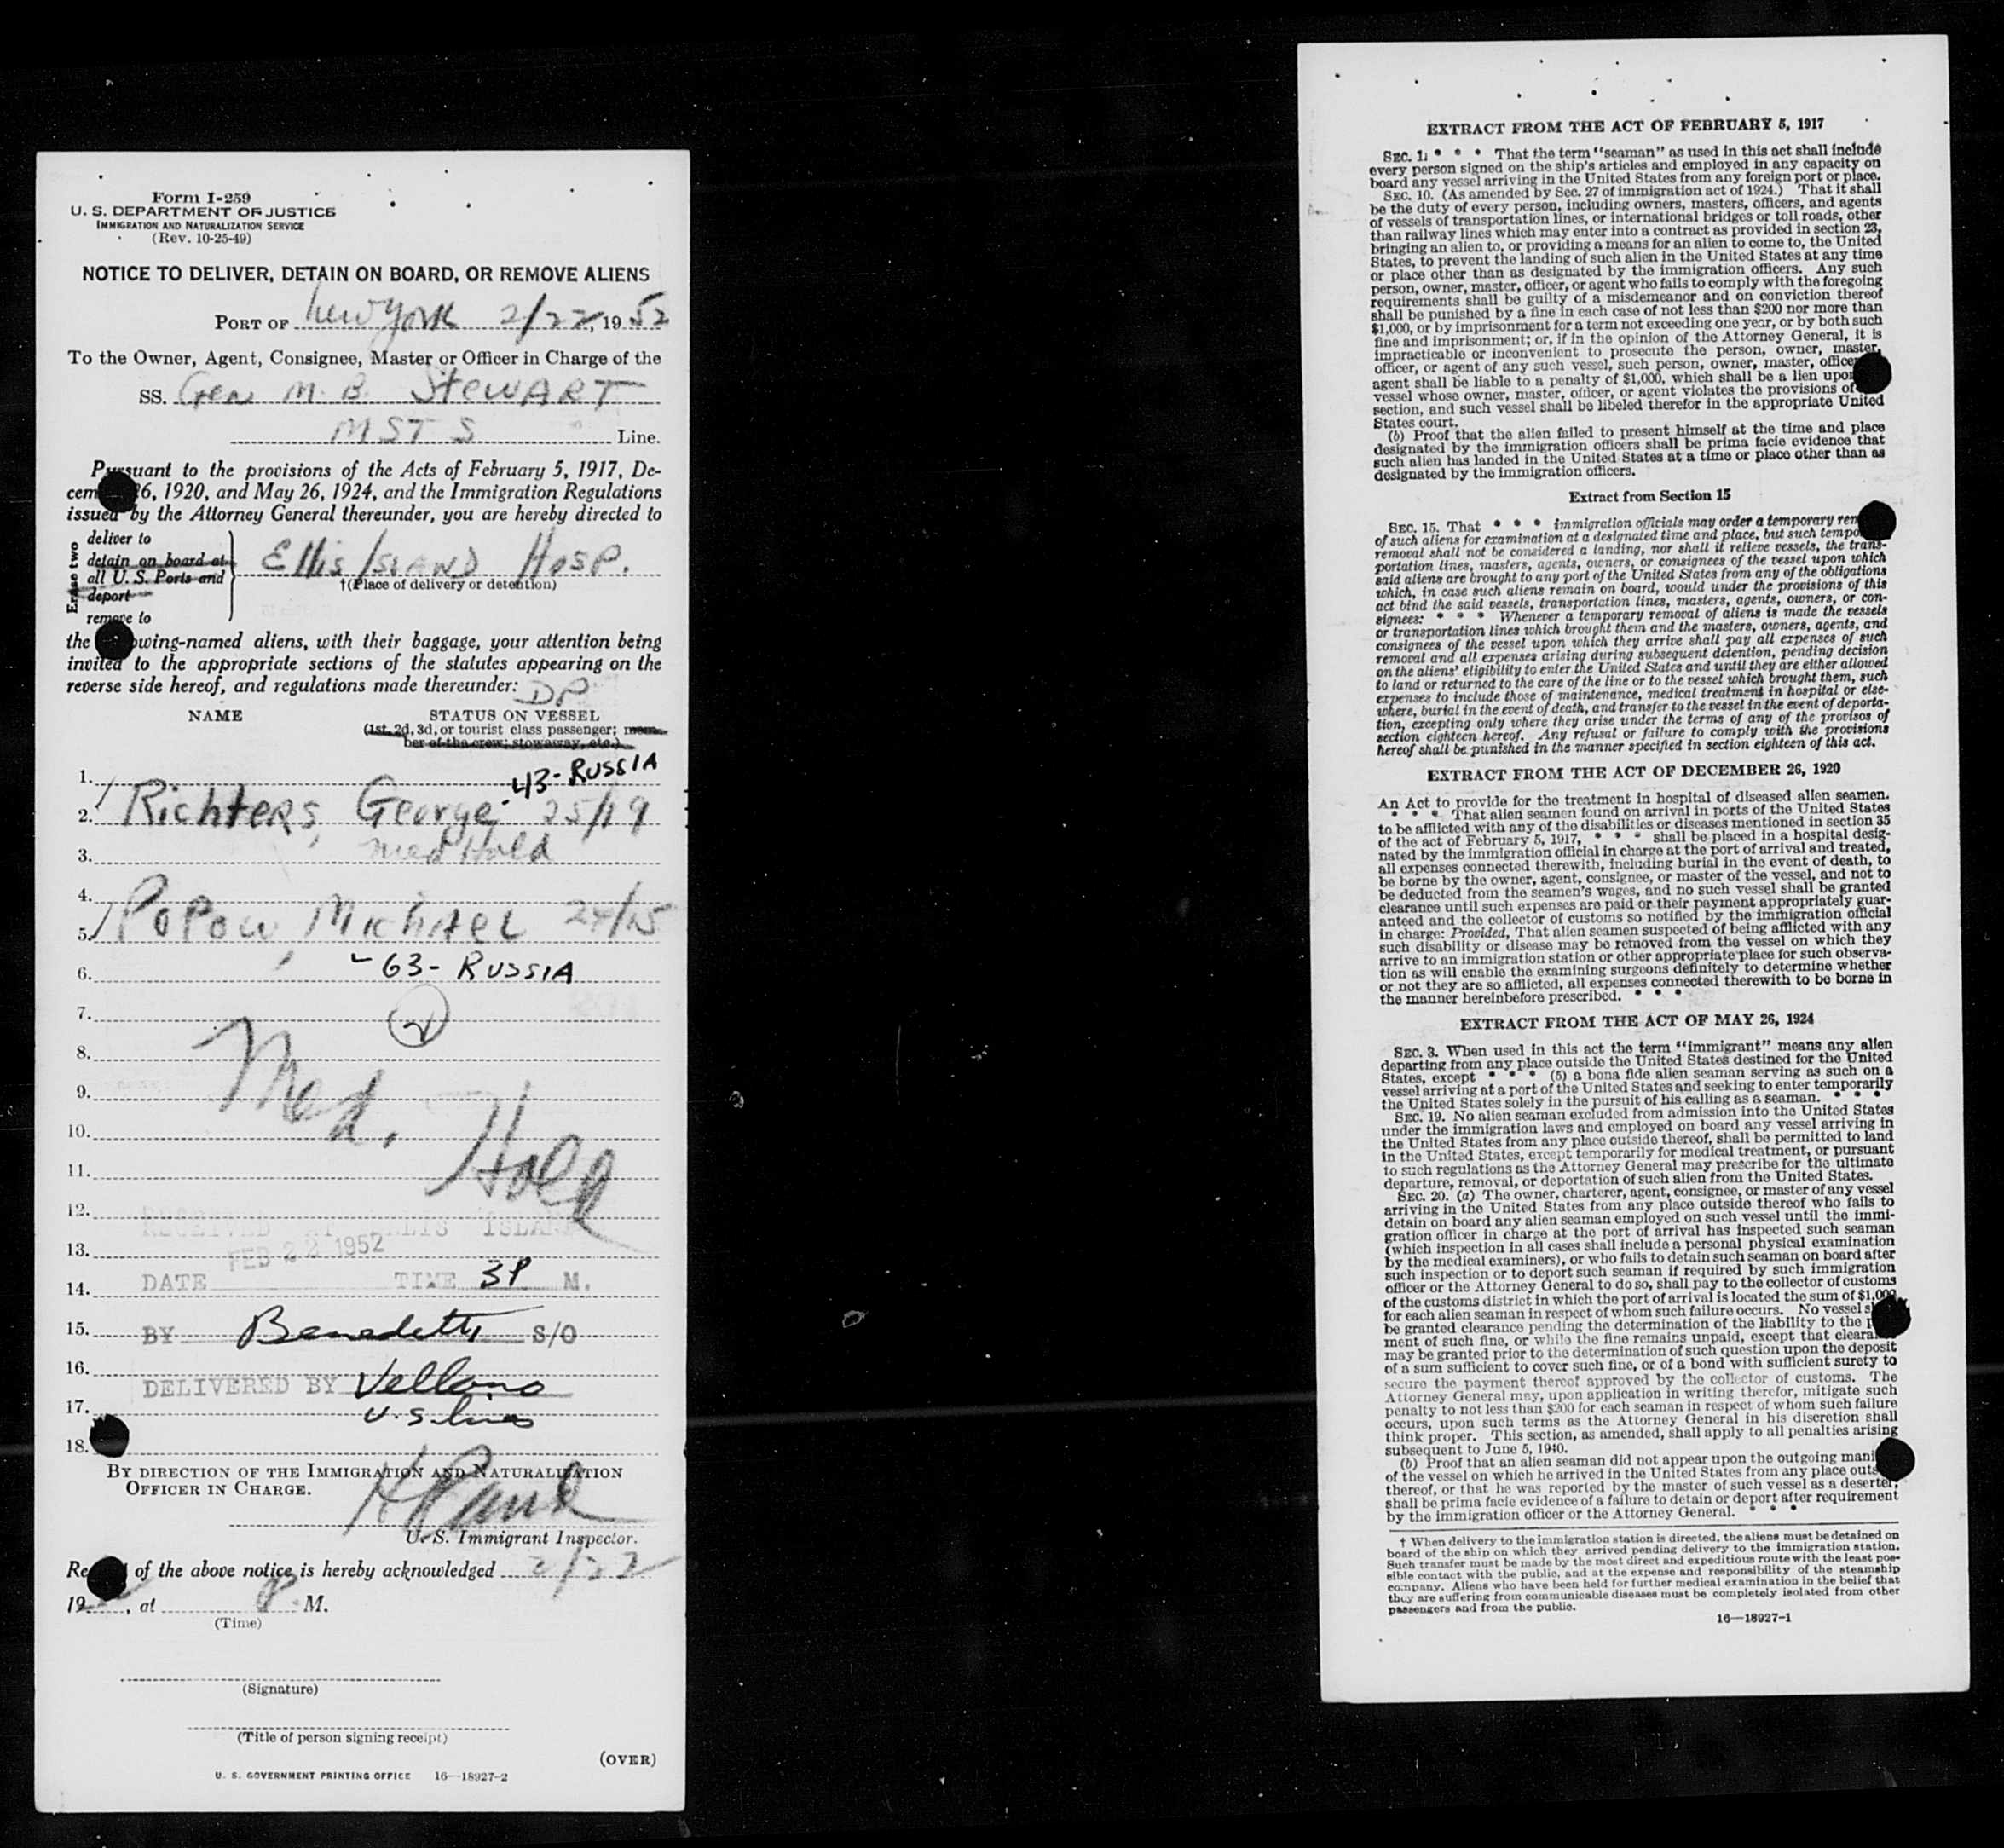 Form I-259
U. S. DEPARTMENT OF JUSTICE
IMMIGRATION AND NATURALIZATION SERVICE
(Rev. 10-25-49)
NOTICE TO DELIVER, DETAIN ON BOARD, OR REMOVE ALIENS
PORT OF New York 2/22, 1952
To the Owner, Agent, Consignee, Master or Officer in Charge of the
SS. Gen M. B. STEWART
MSTS Line.
Pursuant to the provisions of the Acts of February 5, 1917, De-
cem 26, 1920, and May 26, 1924, and the Immigration Regulations
issued by the Attorney General thereunder, you are hereby directed to
Erase two
deliver to
detain on board at
all U. S. Ports and
deport
remove to
Ellis ISLAND HOSP.
†(Place of delivery or detention)
the owing-named aliens, with their baggage, your attention being
invited to the appropriate sections of the statutes appearing on the
reverse side hereof, and regulations made thereunder:
DP
NAME STATUS ON VESSEL
(1st, 2d, 3d, or tourist class passenger; mem-
ber of the crew; stowaway, etc.)
1. 43- RUSSIA
2. Richters, George 25/19
3. med Hold
4.
5. POPOW, MICHAEL 24/15
6. -63- RUSSIA
7. 2
8.
9. Med.
10.
11. Hold
12. RECEIVED AT ELLIS ISLAND
13. FEB 22 1952
14. DATE TIME 3P M.
15. BY Benedetti S/O
16. DELIVERED BY Vellano
17. U.S. Lines
18.
BY DIRECTION OF THE IMMIGRATION AND NATURALIZATION
OFFICER IN CHARGE.
U. S. Immigrant Inspector.
Re of the above notice is hereby acknowledged 2/22
19 , at P. M.
(Time)
(Signature)
(Title of person signing receipt)
(OVER)
U. S. GOVERNMENT PRINTING OFFICE 16—18927-2
EXTRACT FROM THE ACT OF FEBRUARY 5, 1917
SEC. 1. * * * That the term "seaman" as used in this act shall include
every person signed on the ship's articles and employed in any capacity on
board any vessel arriving in the United States from any foreign port or place.
SEC. 10. (As amended by Sec. 27 of immigration act of 1924.) That it shall
be the duty of every person, including owners, masters, officers, and agents
of vessels of transportation lines, or international bridges or toll roads, other
than railway lines which may enter into a contract as provided in section 23,
bringing an alien to, or providing a means for an alien to come to, the United
States, to prevent the landing of such alien in the United States at any time
or place other than as designated by the immigration officers. Any such
person, owner, master, officer, or agent who fails to comply with the foregoing
requirements shall be guilty of a misdemeanor and on conviction thereof
shall be punished by a fine in each case of not less than $200 nor more than
$1,000, or by imprisonment for a term not exceeding one year, or by both such
fine and imprisonment; or, if in the opinion of the Attorney General, it is
impracticable or inconvenient to prosecute the person, owner, master,
officer, or agent of any such vessel, such person, owner, master, officer
agent shall be liable to a penalty of $1,000, which shall be a lien upon
vessel whose owner, master, officer, or agent violates the provisions of
section, and such vessel shall be libeled therefor in the appropriate United
States court.
(b) Proof that the alien failed to present himself at the time and place
designated by the immigration officers shall be prima facie evidence that
such alien has landed in the United States at a time or place other than as
designated by the immigration officers.
Extract from Section 15
SEC. 15. That * * * immigration officials may order a temporary rem
of such aliens for examination at a designated time and place, but such tempo
removal shall not be considered a landing, nor shall it relieve vessels, the trans-
portation lines, masters, agents, owners, or consignees of the vessel upon which
said aliens are brought to any port of the United States from any of the obligations
which, in case such aliens remain on board, would under the provisions of this
act bind the said vessels, transportation lines, masters, agents, owners, or con-
signees: * * * Whenever a temporary removal of aliens is made the vessels
or transportation lines which brought them and the masters, owners, agents, and
consignees of the vessel upon which they arrive shall pay all expenses of such
removal and all expenses arising during subsequent detention, pending decision
on the aliens' eligibility to enter the United States and until they are either allowed
to land or returned to the care of the line or to the vessel which brought them, such
expenses to include those of maintenance, medical treatment in hospital or else-
where, burial in the event of death, and transfer to the vessel in the event of deporta-
tion, excepting only where they arise under the terms of any of the provisos of
section eighteen hereof. Any refusal or failure to comply with the provisions
hereof shall be punished in the manner specified in section eighteen of this act.
EXTRACT FROM THE ACT OF DECEMBER 26, 1920
An Act to provide for the treatment in hospital of diseased alien seamen.
* * * That alien seamen found on arrival in ports of the United States
to be afflicted with any of the disabilities or diseases mentioned in section 35
of the act of February 5, 1917, * * * shall be placed in a hospital desig-
nated by the immigration official in charge at the port of arrival and treated,
all expenses connected therewith, including burial in the event of death, to
be borne by the owner, agent, consignee, or master of the vessel, and not to
be deducted from the seamen's wages, and no such vessel shall be granted
clearance until such expenses are paid or their payment appropriately guar-
anteed and the collector of customs so notified by the immigration official
in charge: Provided, That alien seamen suspected of being afflicted with any
such disability or disease may be removed from the vessel on which they
arrive to an immigration station or other appropriate place for such observa-
tion as will enable the examining surgeons definitely to determine whether
or not they are so afflicted, all expenses connected therewith to be borne in
the manner hereinbefore prescribed. * * *
EXTRACT FROM THE ACT OF MAY 26, 1924
SEC. 3. When used in this act the term "immigrant" means any alien
departing from any place outside the United States destined for the United
States, except * * * (5) a bona fide alien seaman serving as such on a
vessel arriving at a port of the United States and seeking to enter temporarily
the United States solely in the pursuit of his calling as a seaman. * * *
SEC. 19. No alien seaman excluded from admission into the United States
under the immigration laws and employed on board any vessel arriving in
the United States from any place outside thereof, shall be permitted to land
in the United States, except temporarily for medical treatment, or pursuant
to such regulations as the Attorney General may prescribe for the ultimate
departure, removal, or deportation of such alien from the United States.
SEC. 20. (a) The owner, charterer, agent, consignee, or master of any vessel
arriving in the United States from any place outside thereof who fails to
detain on board any alien seaman employed on such vessel until the immi-
gration officer in charge at the port of arrival has inspected such seaman
(which inspection in all cases shall include a personal physical examination
by the medical examiners), or who fails to detain such seaman on board after
such inspection or to deport such seaman if required by such immigration
officer or the Attorney General to do so, shall pay to the collector of customs
of the customs district in which the port of arrival is located the sum of $1,000
for each alien seaman in respect of whom such failure occurs. No vessel s
be granted clearance pending the determination of the liability to the p
ment of such fine, or while the fine remains unpaid, except that clearan
may be granted prior to the determination of such question upon the deposit
of a sum sufficient to cover such fine, or of a bond with sufficient surety to
secure the payment thereof approved by the collector of customs. The
Attorney General may, upon application in writing therefor, mitigate such
penalty to not less than $200 for each seaman in respect of whom such failure
occurs, upon such terms as the Attorney General in his discretion shall
think proper. This section, as amended, shall apply to all penalties arising
subsequent to June 5, 1940.
(b) Proof that an alien seaman did not appear upon the outgoing mani
of the vessel on which he arrived in the United States from any place outs
thereof, or that he was reported by the master of such vessel as a deserter,
shall be prima facie evidence of a failure to detain or deport after requirement
by the immigration officer or the Attorney General. * * *
† When delivery to the immigration station is directed, the aliens must be detained on
board of the ship on which they arrived pending delivery to the immigration station.
Such transfer must be made by the most direct and expeditious route with the least pos-
sible contact with the public, and at the expense and responsibility of the steamship
company. Aliens who have been held for further medical examination in the belief that
they are suffering from communicable diseases must be completely isolated from other
passengers and from the public.
16—18927-1